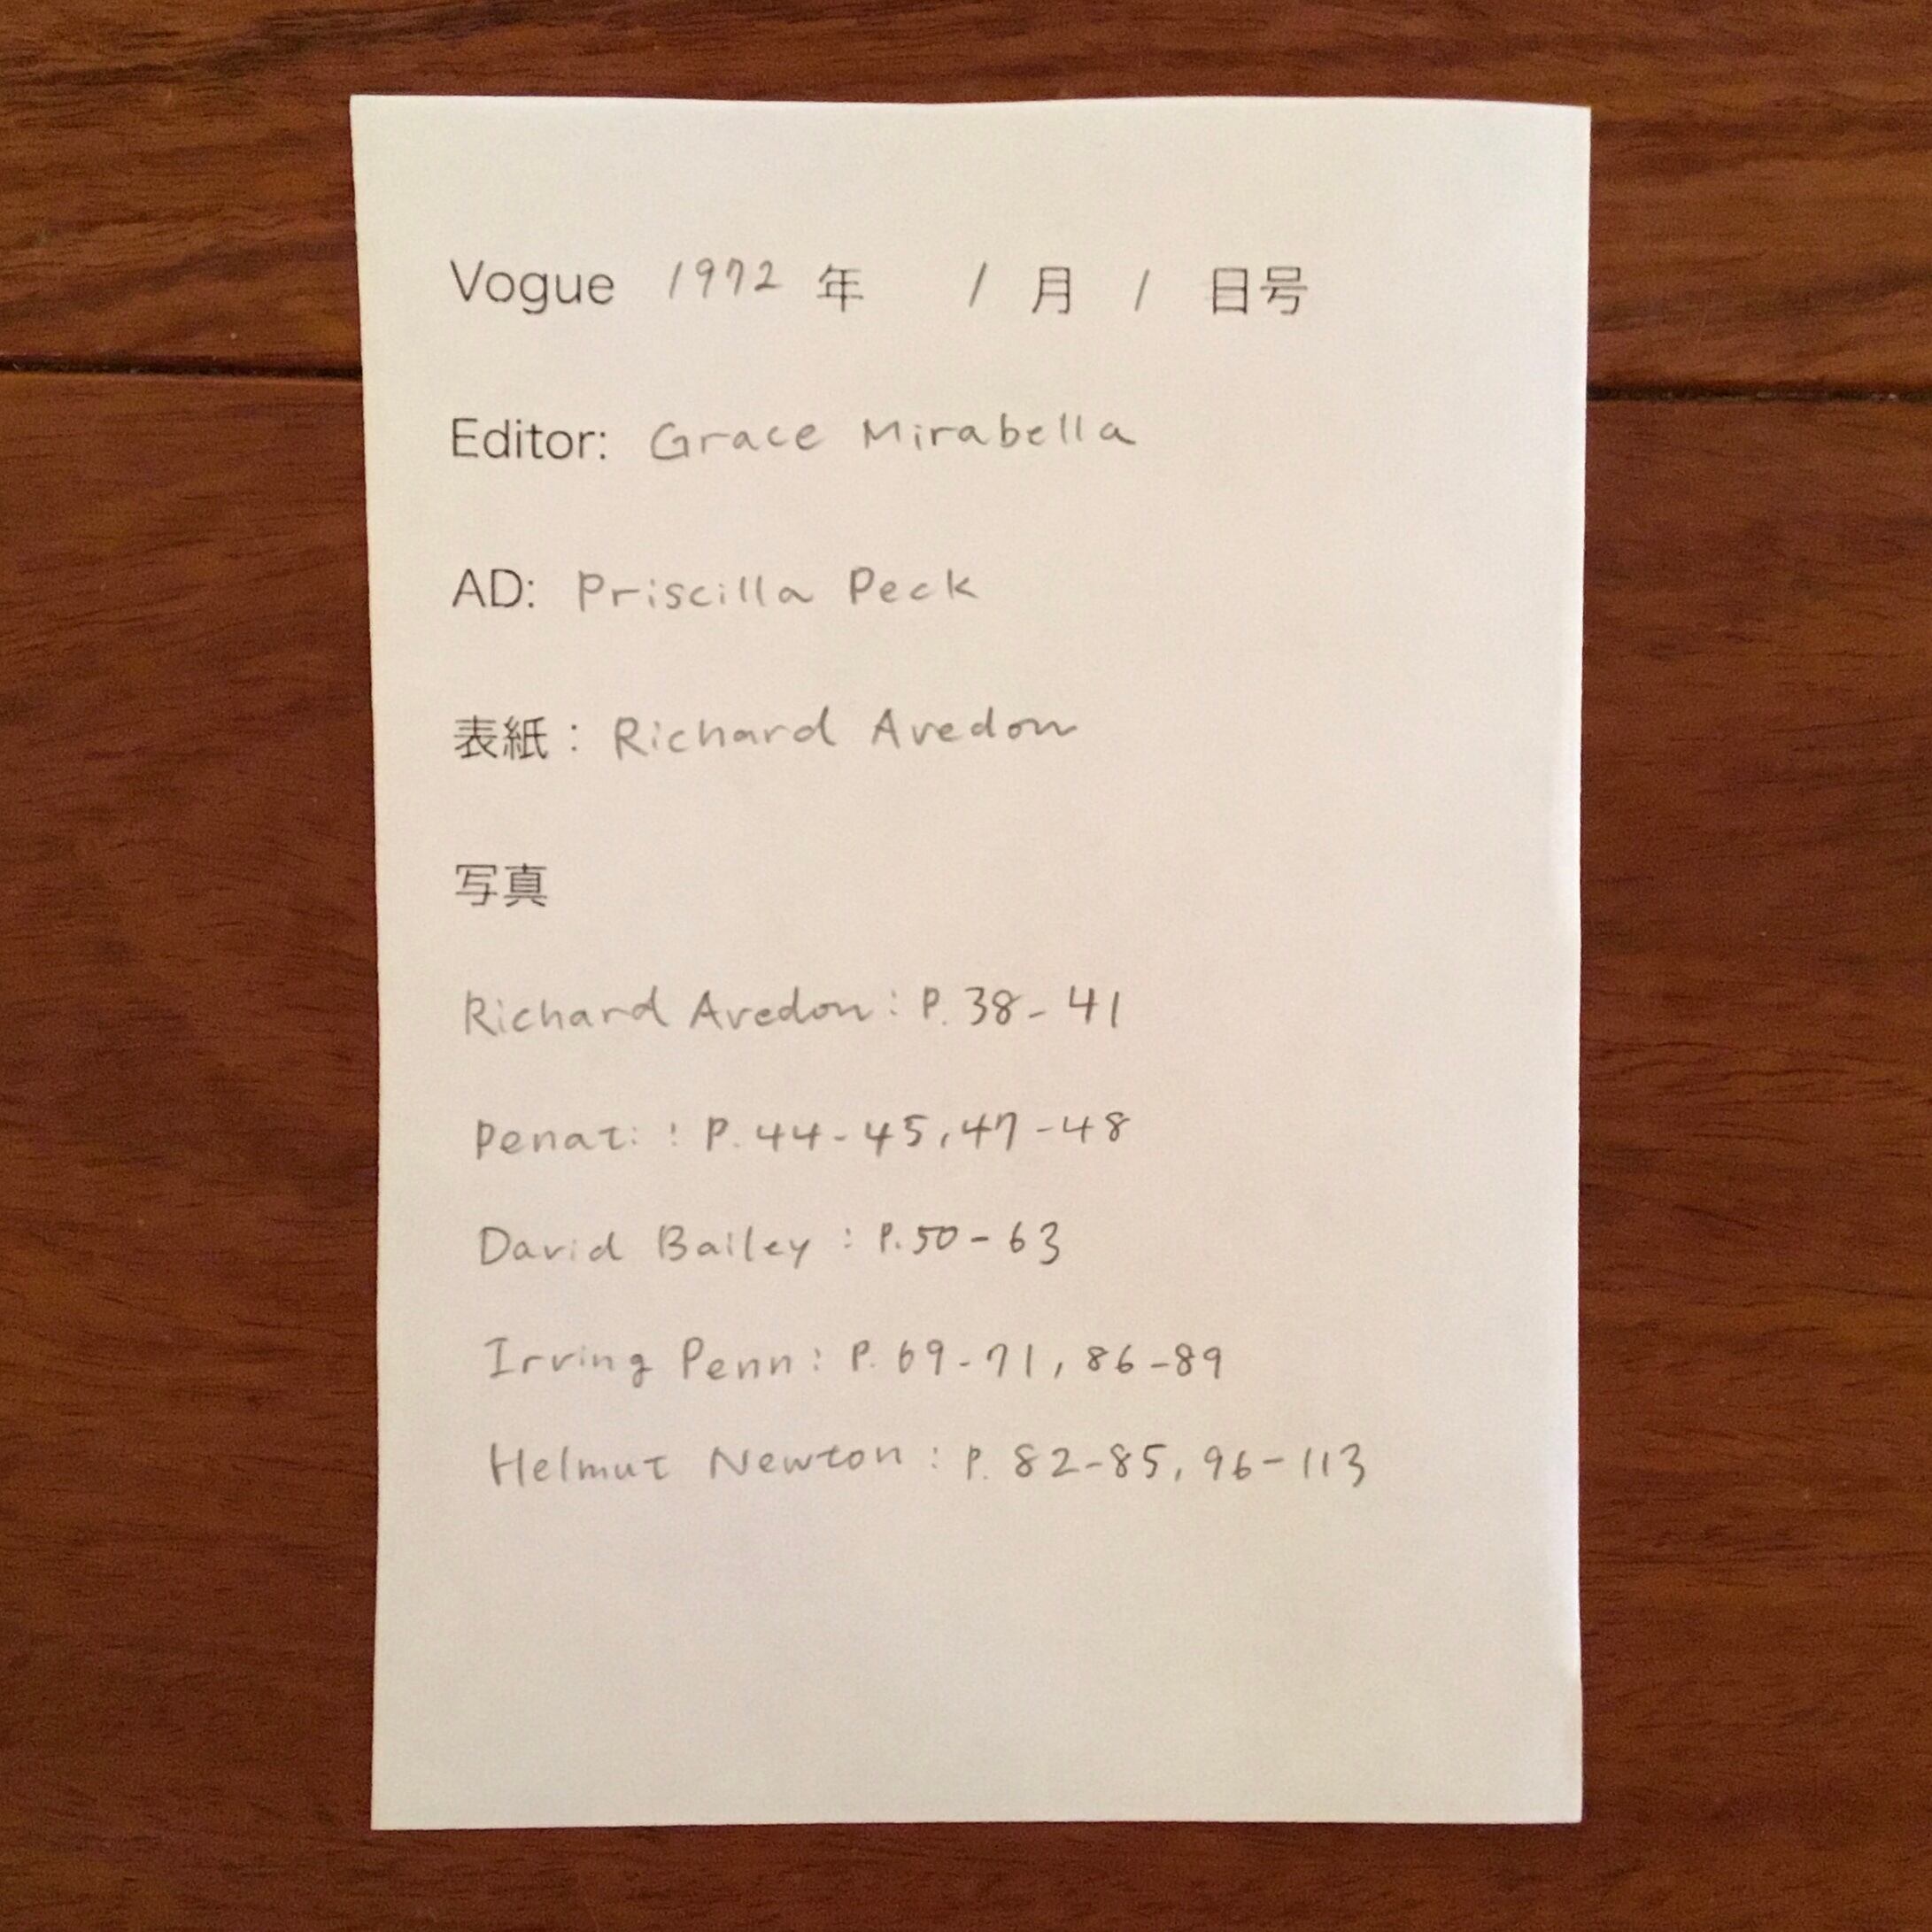 Vogue 1972 年 1 月 1 日号
Editor: Grace Mirabella
AD: Priscilla Peck
表紙： Richard Avedon
写真
Richard Avedon : P. 38 - 41
Penati : P. 44 - 45, 47 - 48
David Bailey : P. 50 - 63
Irving Penn : P. 69 - 71, 86 - 89
Helmut Newton : P. 82 - 85, 96 - 113